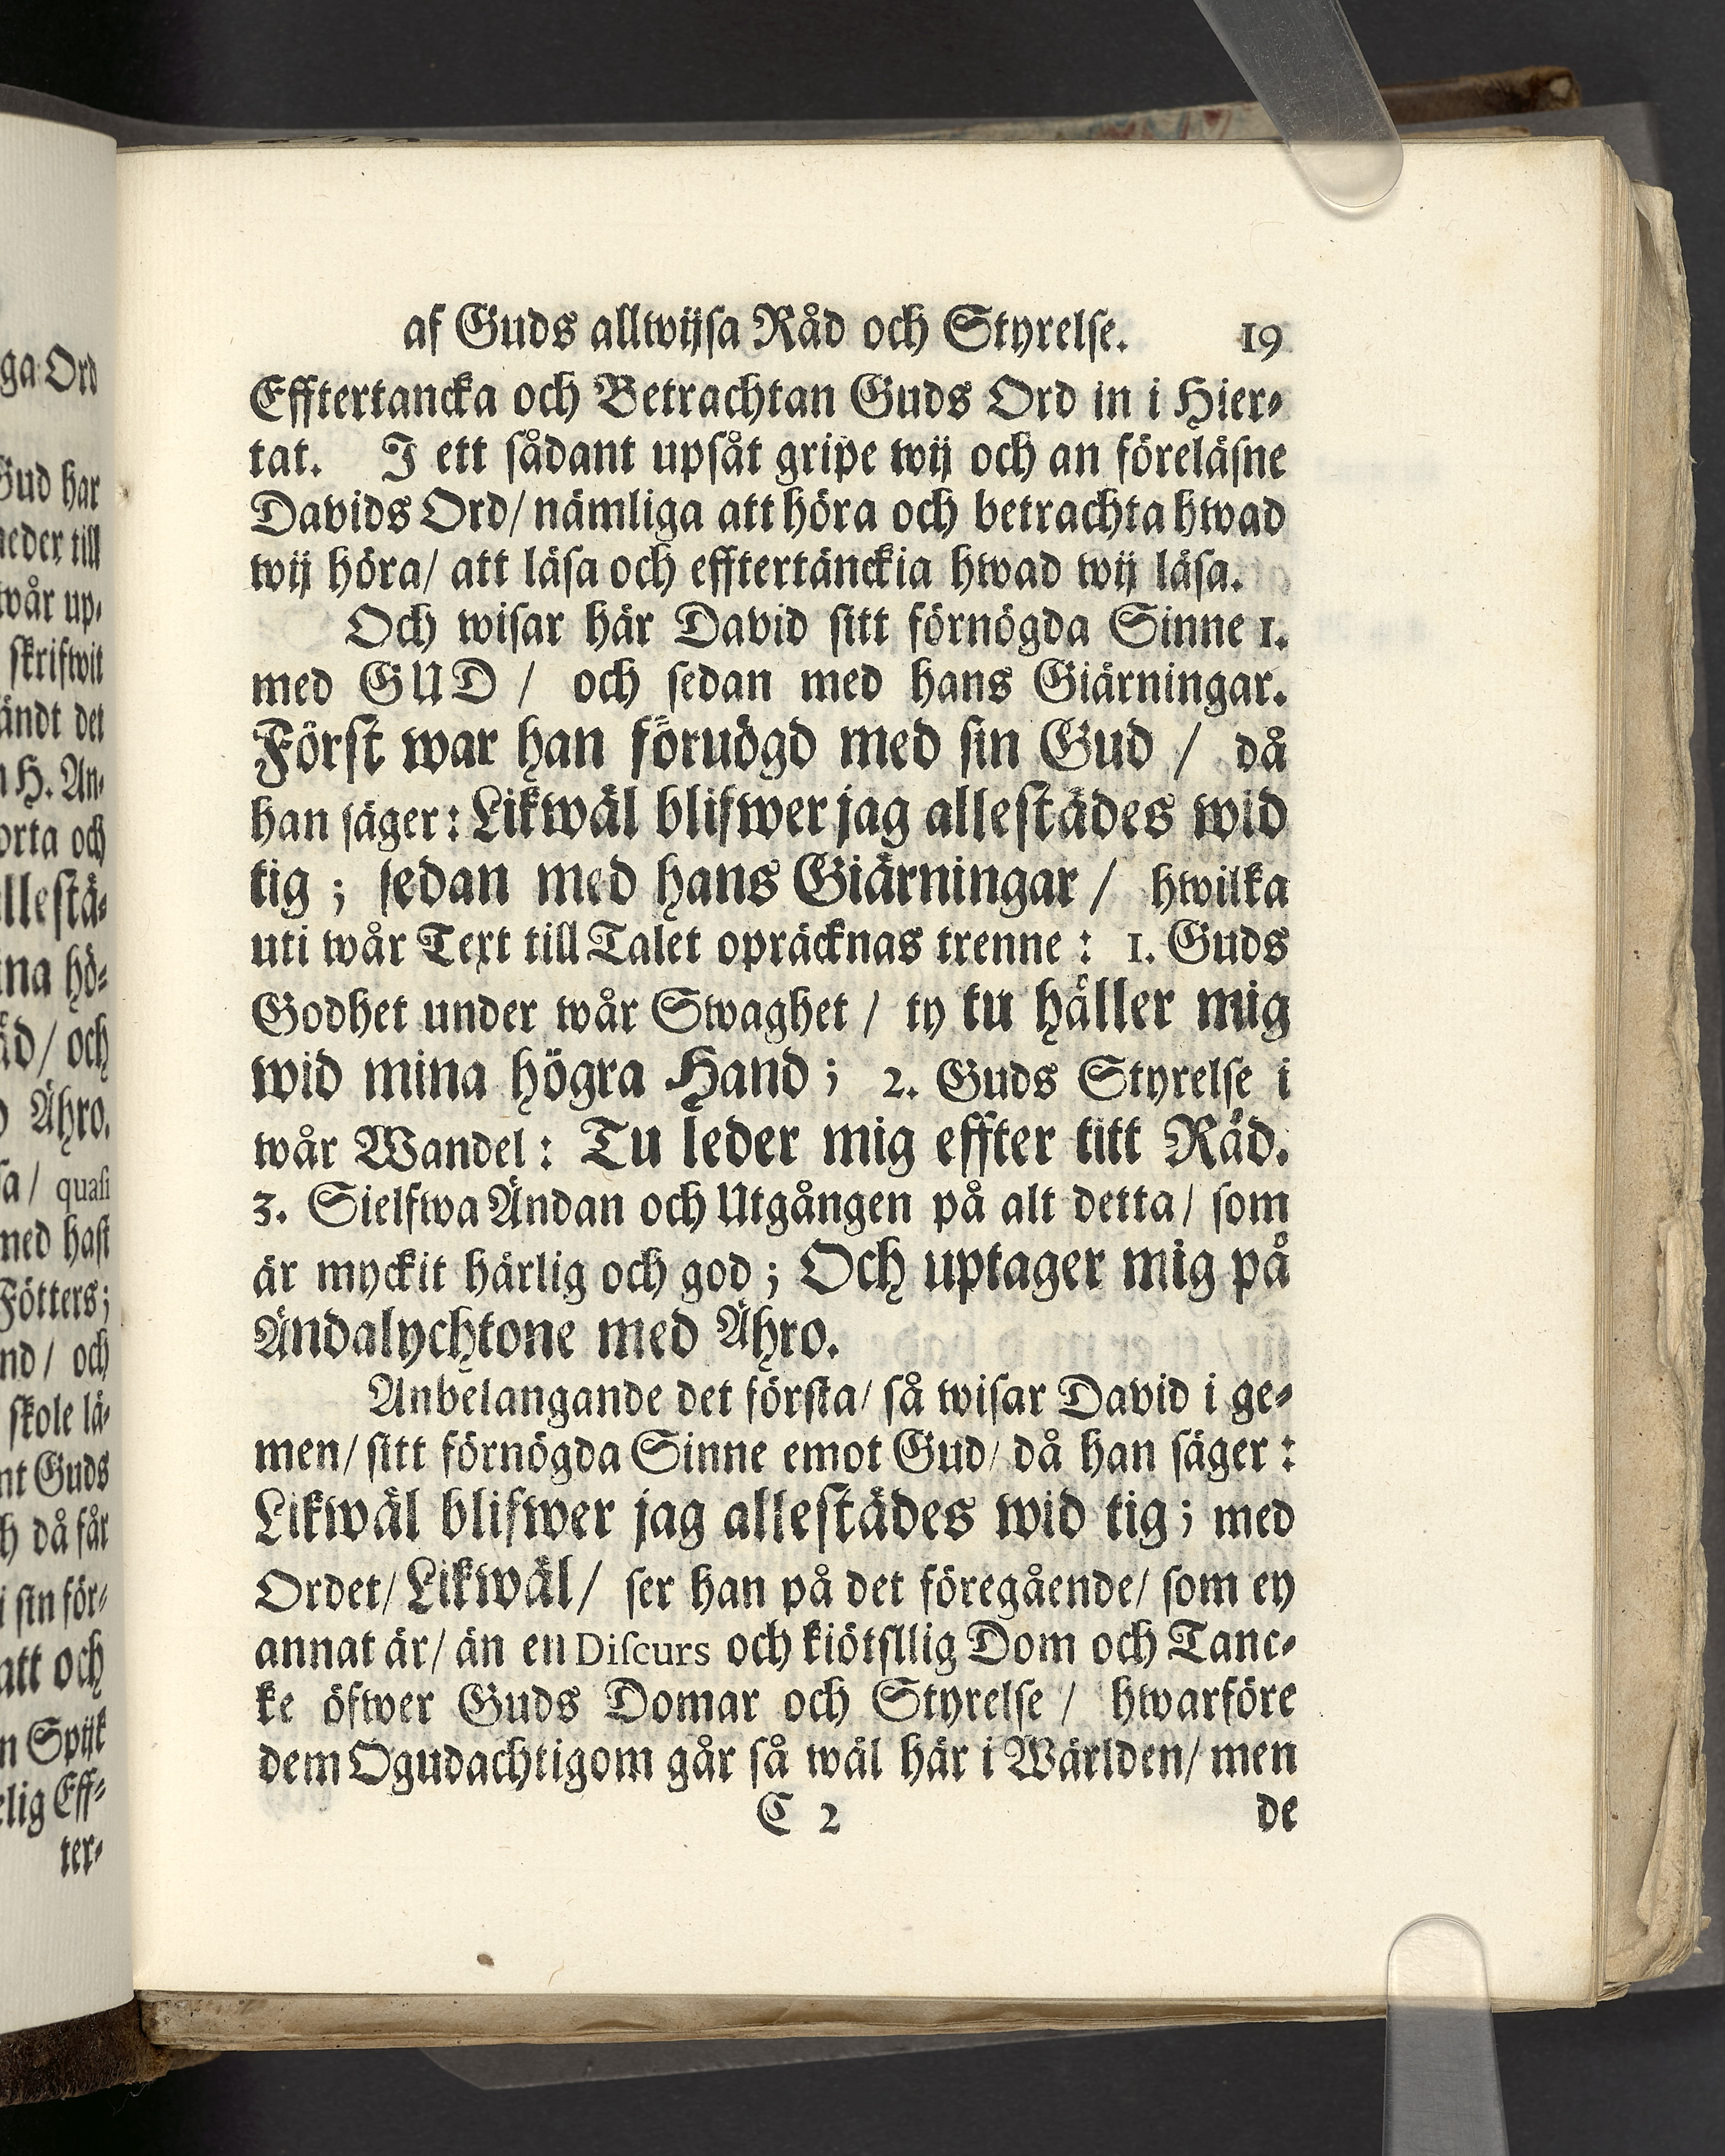 ga Ord
Gud har
neder till
wår up-
skrifwit
ändt det
H. An-
orta och
allestä-
ina hö-
åd / och
Ähro.
sa / quasi
med hast
Fötters;
nd / och
skole lä-
nt Guds
då får
i sin för-
att och
n Spijk
elig Eff-
ter-
af Guds allwijsa Råd och Styrelse. 19
Efftertancka och Betrachtan Guds Ord in i Hier-
tat. I ett sådant upsåt gripe wij och an föreläsne
Davids Ord / nämliga att höra och betrachta hwad
wij höra / att läsa och efftertänckia hwad wij läsa.
Och wisar här David sitt förnögda Sinne 1.
med GUD / och sedan med hans Giärningar.
Först war han föruögd med sin Gud / då
han säger: Likwäl blifwer jag allestädes wid
tig ; sedan med hans Giärningar / hwilka
uti wår Text till Talet opräcknas trenne : 1. Guds
Godhet under wår Swaghet / ty tu håller mig
wid mina högra Hand ; 2. Guds Styrelse i
wår Wandel : Tu leder mig effter titt Råd.
3. Sielfwa Ändan och Utgången på alt detta / som
är myckit härlig och god ; Och uptager mig på
Ändalychtone med Ähro.
Anbelangande det första / så wisar David i ge-
men / sitt förnögda Sinne emot Gud / då han säger :
Likwäl blifwer jag allestädes wid tig ; med
Ordet / Likwäl / ser han på det föregående / som ey
annat är / än en Discurs och kiötsllig Dom och Tanc-
ke öfwer Guds Domar och Styrelse / hwarföre
dem Ogudachtigom går så wäl här i Wärlden / men
C 2 de